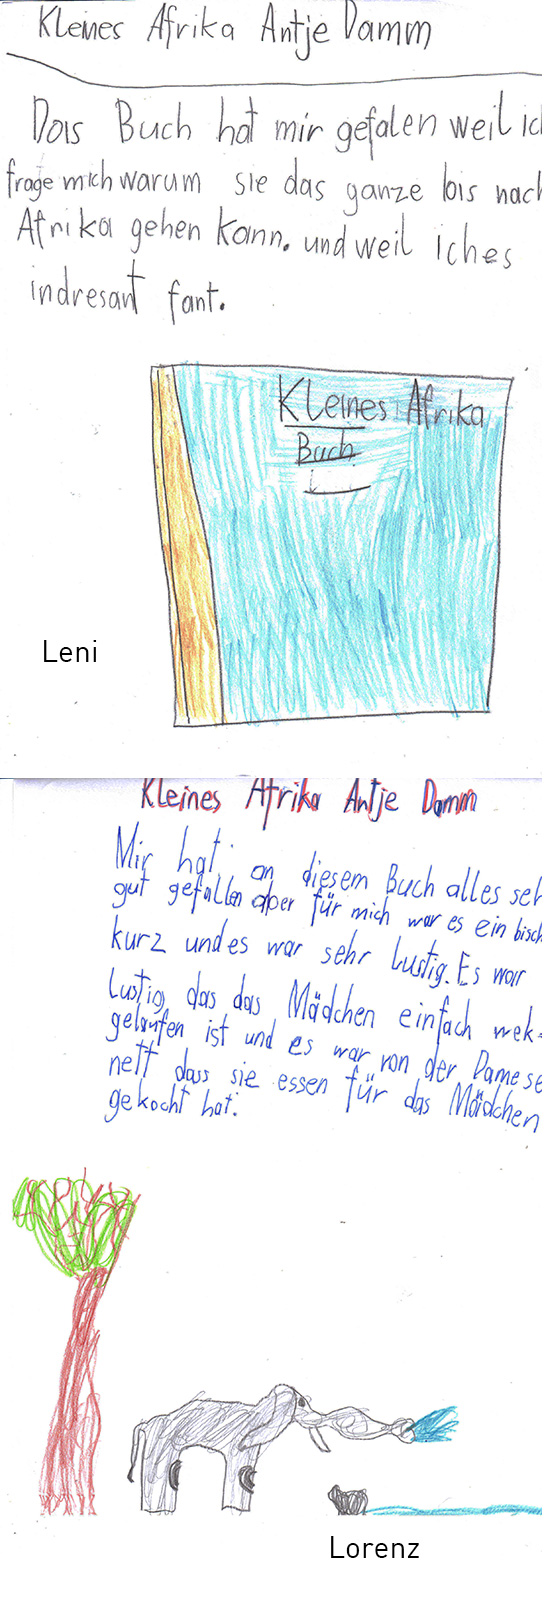 Kleines Afrika Antje Damm
Das Buch hat mir gefalen weil ich
frage mich warum sie das ganze bis nach
Afrika gehen kann. und weil iches
indresant fant.
Kleines Afrika
Buch
Leni
Kleines Afrika Antje Damm
Mir hat an diesem Buch alles seh
gut gefallen aber für mich war es ein bisch
kurz und es war sehr lustig. Es war
Lustig das das Mädchen einfach wek-
gelaufen ist und es war von der Dame se
nett dass sie essen für das Mädchen
gekocht hat.
Lorenz